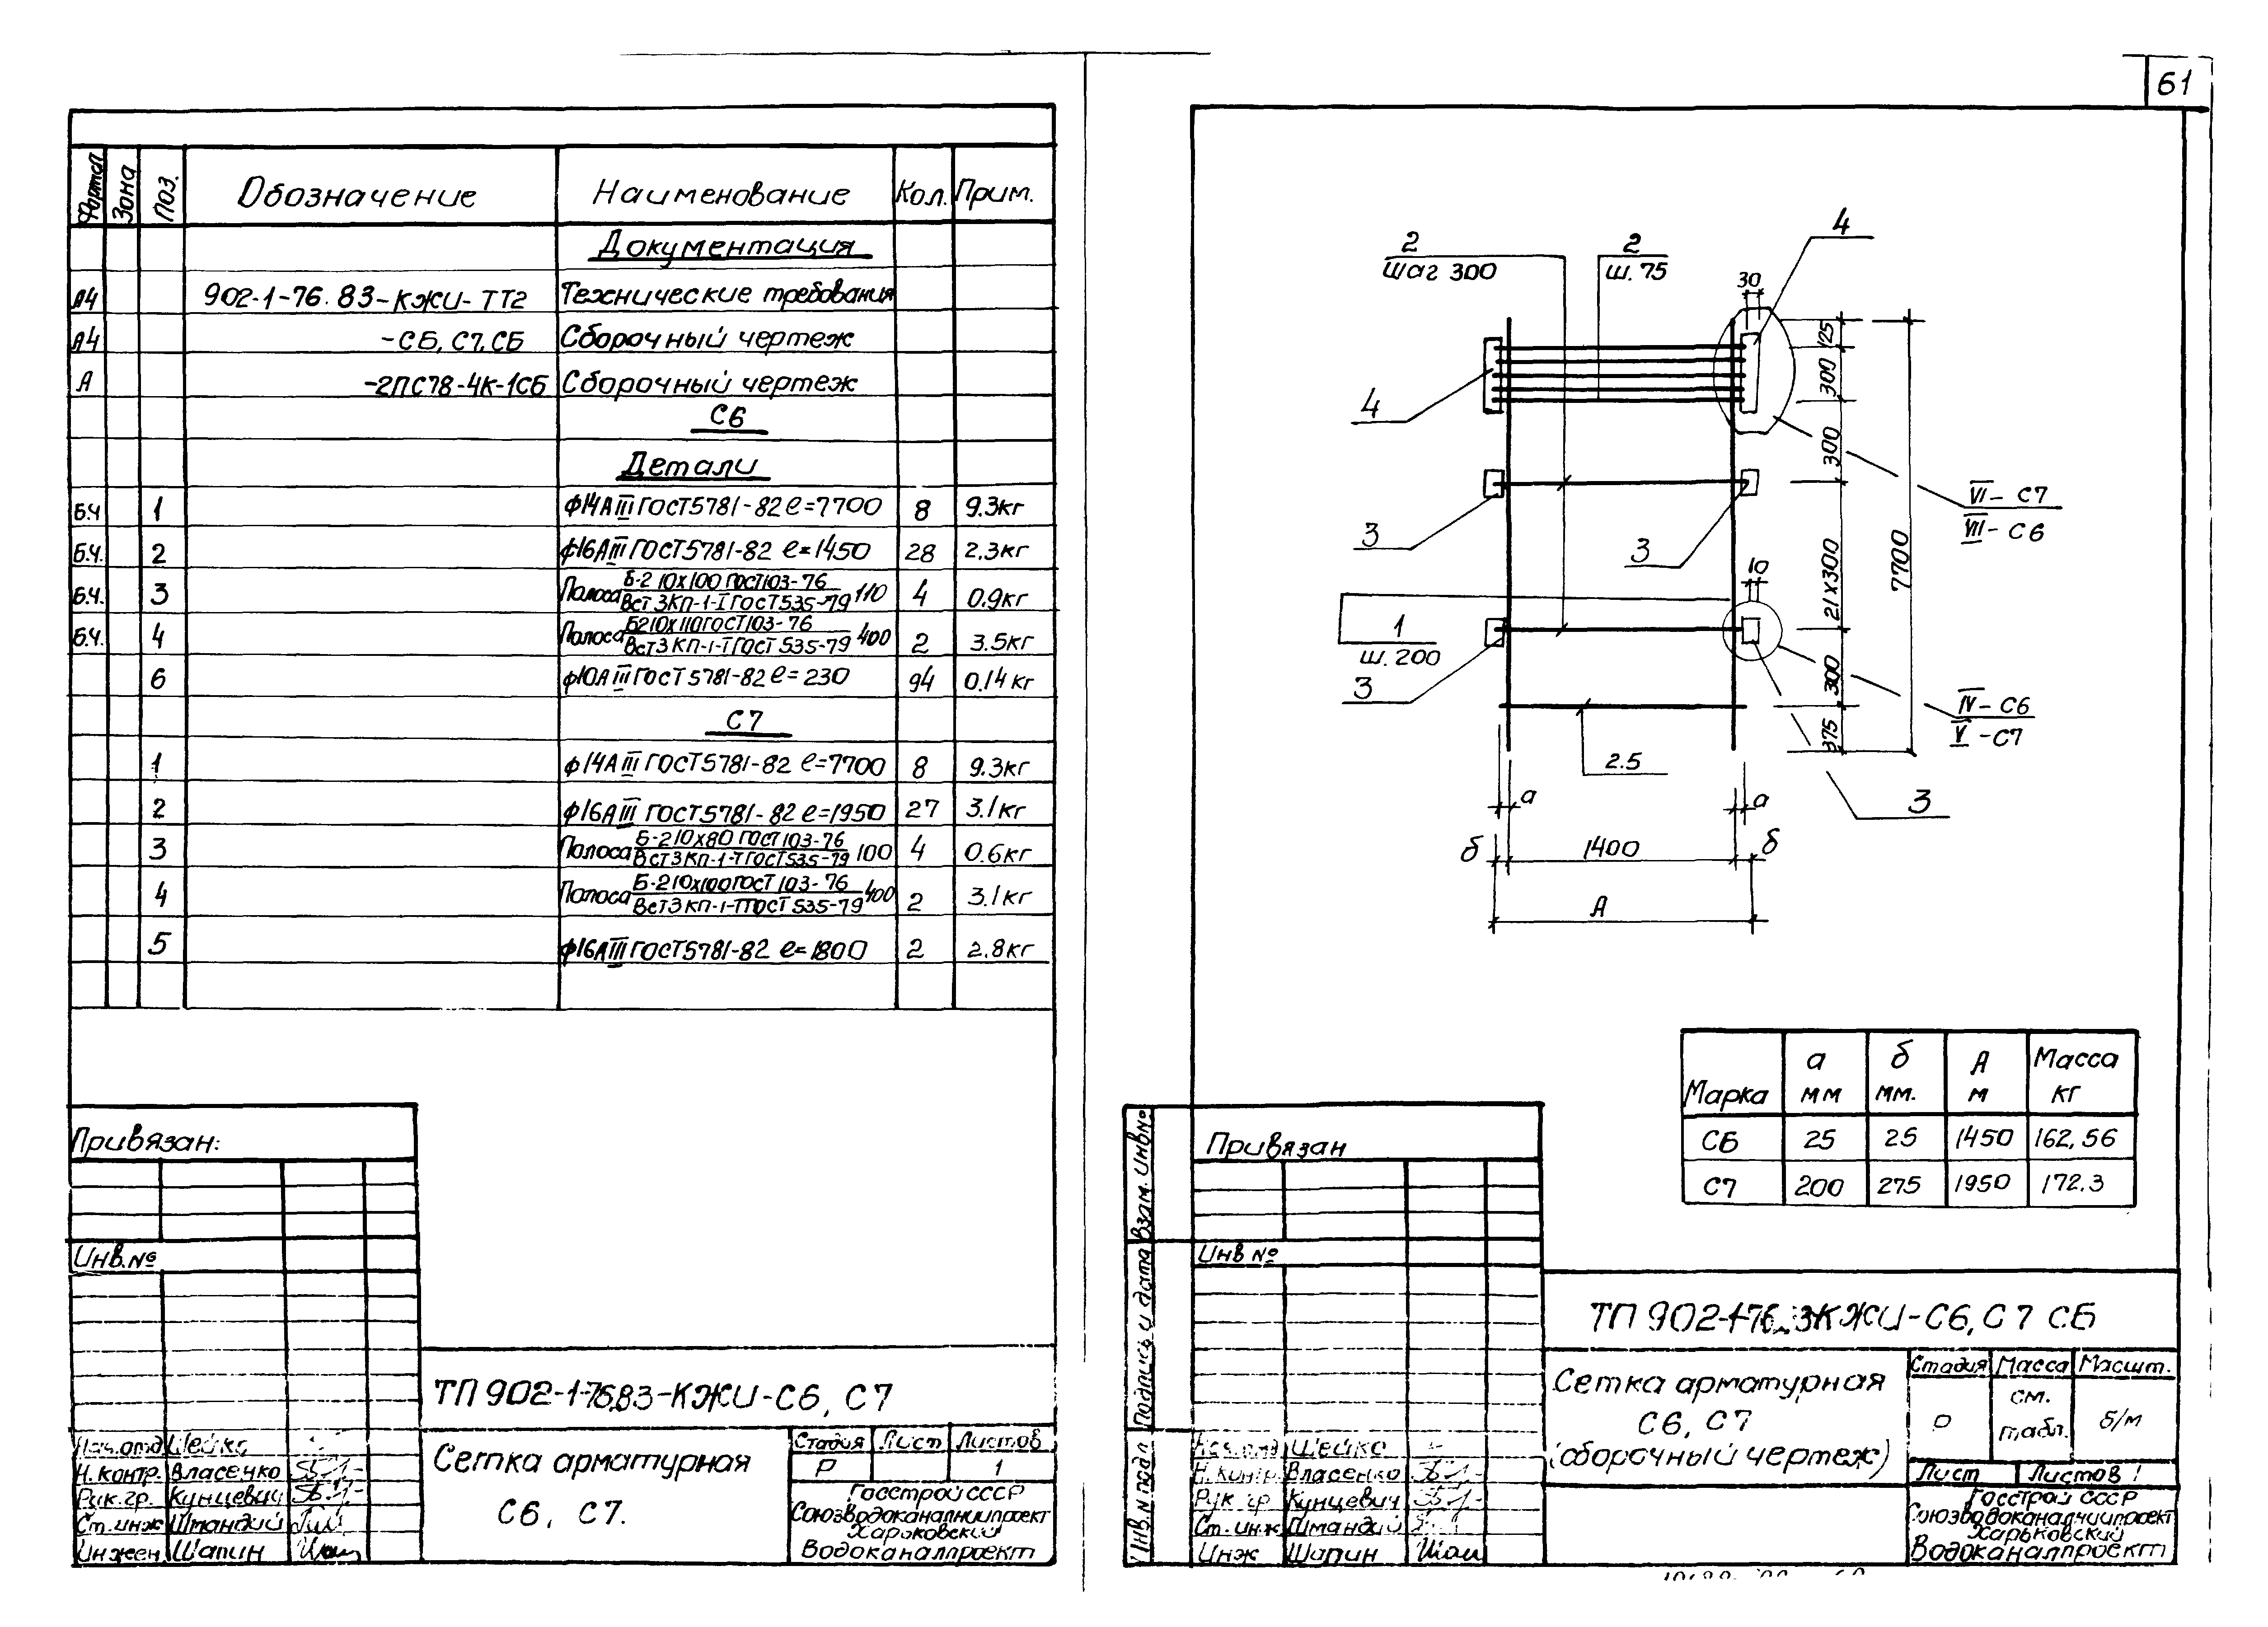 61
Формат Зона Поз. Обозначение Наименование Кол. Прим.
Документация
А4 902-1-76.83-КЖИ-ТТ2 Технические требования
А4 -СБ, С7, СБ Сборочный чертеж
А -2ПС78-4К-1СБ Сборочный чертеж
С6
Детали
Б.Ч 1 ф14АIII ГОСТ5781-82 ℓ=7700 8 9.3кг
Б.Ч. 2 ф16АIII ГОСТ5781-82 ℓ=1450 28 2.3кг
Б.Ч. 3 Полоса Б-2 10х100 ГОСТ103-76 110 4 0.9кг
Вст3Кп-1-I ГОСТ535-79
Б.Ч. 4 Полоса Б210х110ГОСТ103-76 400 2 3.5кг
Вст3КП-1-I ГОСТ535-79
6 ф10АIII ГОСТ5781-82 ℓ=230 94 0.14кг
С7
1 ф14АIII ГОСТ5781-82 ℓ=7700 8 9.3кг
2 ф16АIII ГОСТ5781-82 ℓ=1950 27 3.1кг
3 Полоса Б-210х80 ГОСТ103-76 100 4 0.6кг
Вст3Кп-1-ТГОСТ535-79
4 Полоса Б-210х100ГОСТ103-76 400 2 3.1кг
Вст3кп-1-ТГОСТ535-79
5 ф16АIII ГОСТ5781-82 ℓ=1800 2 2.8кг
Привязан:
Инв.№
ТП902-1-76.83-КЖИ-С6, С7
Нач.отд Шейко
Н.контр. Власенко
Рук.гр. Кунцевич
Ст.инж Штандий
Инжен Шапин
Сетка арматурная
С6, С7.
Стадия Лист Листов
Р 1
Госстрой СССР
Союзводоканалниипроект
Харьковский
Водоканалпроект
2
шаг 300
2
ш. 75
4
30
125
300
4
300
VI- С7
VII- С6
3
3
7700
10
21х300
1
ш. 200
3
300
IV- С6
V -С7
375
2.5
3
а
а
б
1400
б
А
Марка а мм б мм. А м Масса кг
СБ 25 25 1450 162,56
С7 200 275 1950 172.3
Взам. Инв№
Подпись и дата
Инв.N подл
Привязан
Инв №
Нач.отд Шейко
Н.контр. Власенко
Рук гр Кунцевич
Ст.инж Штандий
Инж Шапин
ТП 902-1-76.83КЖИ-С6, С7 СБ
Сетка арматурная
С6, С7
(сборочный чертеж)
Стадия Масса Масшт.
Р см. табл. Б/М
Лист Листов 1
Госстрой СССР
Союзводоканалниипроект
Харьковский
Водоканалпроект